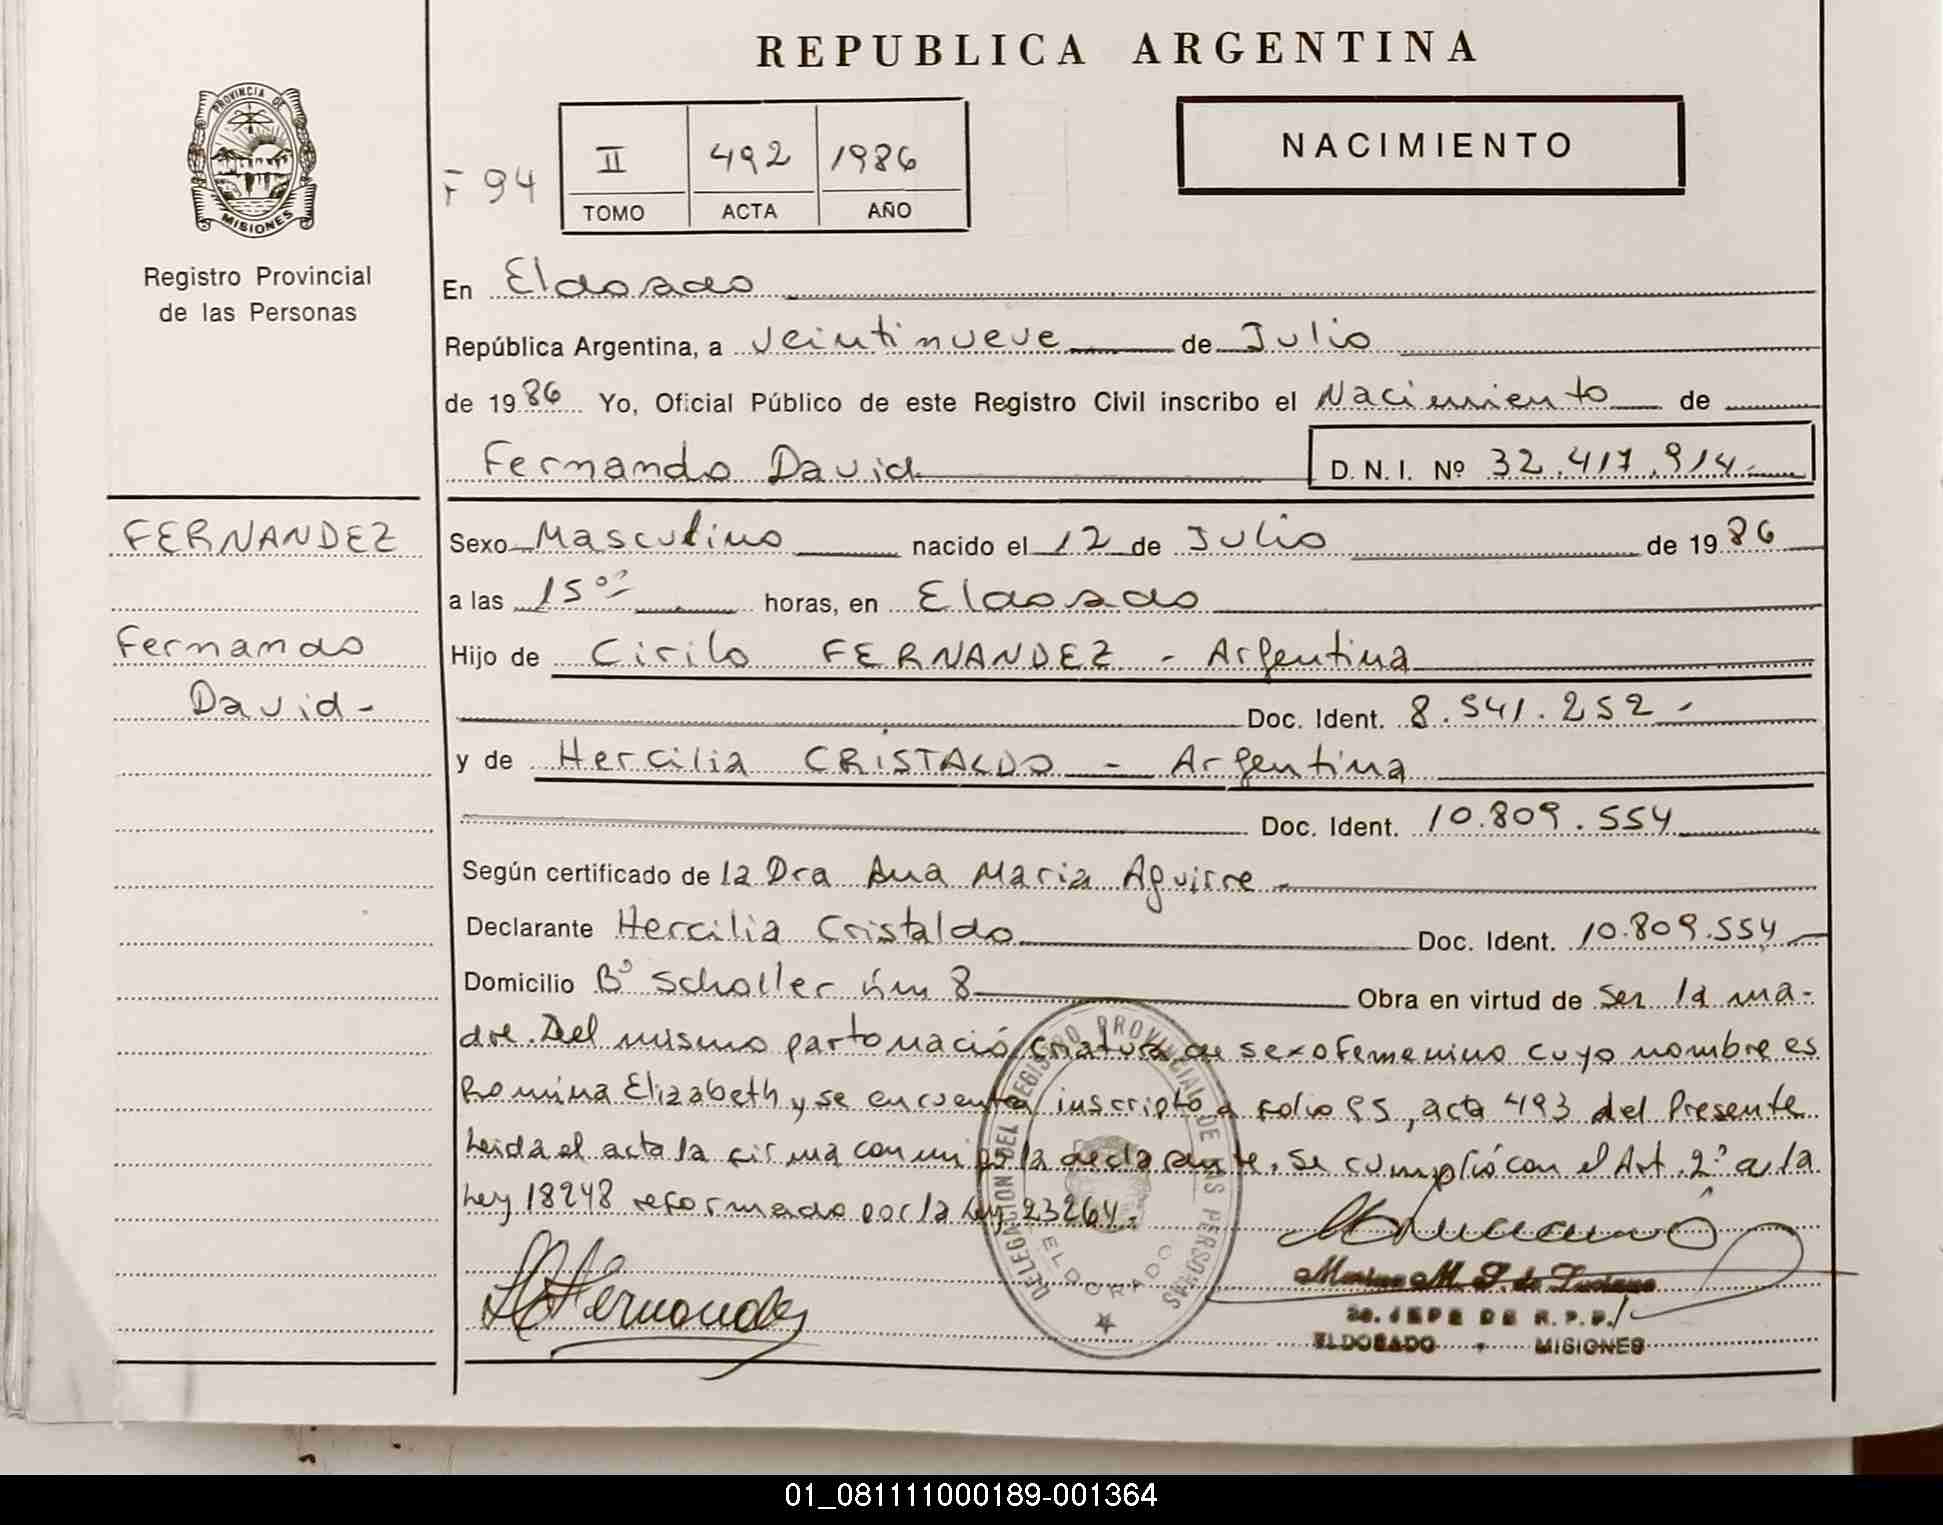 REPUBLICA ARGENTINA
PROVINCIA DE
MISIONES
Registro Provincial
de las Personas
F 94
II 492 1986
TOMO ACTA AÑO
NACIMIENTO
En Eldorado
República Argentina, a veintinueve de Julio
de 1986 Yo, Oficial Público de este Registro Civil inscribo el Nacimiento de
Fernando David D.N.I. Nº 32.417.914.-
FERNANDEZ
Fernando
David -
Sexo Masculino nacido el 12 de Julio de 1986
a las 15 horas, en Eldorado
Hijo de Cirilo FERNANDEZ - Argentina
Doc. Ident. 8.541.252 -
y de Hercilia CRISTALDO - Argentina
Doc. Ident. 10.809.554
Según certificado de la Dra Ana Maria Aguirre -
Declarante Hercilia Cristaldo Doc. Ident. 10.809.554
Domicilio Bº Scholler km 8 Obra en virtud de ser la ma-
dre. Del mismo parto nació criatura de sexo femenino cuyo nombre es
Romina Elizabeth y se encuentra inscripto a folio 95, acta 493 del Presente
Leida el acta la firma conmigo la declarante, se cumplió con el Art. 2º a la
Ley 18248 reformado por la Ley 23264.-
DELEGACION DEL REGISTRO PROVINCIAL DE LAS PERSONAS
ELDORADO
H C Fernandez
Marina M. S. de Luciano
2o. JEFE DE R.P.P.
ELDORADO - MISIONES
01_081111000189-001364